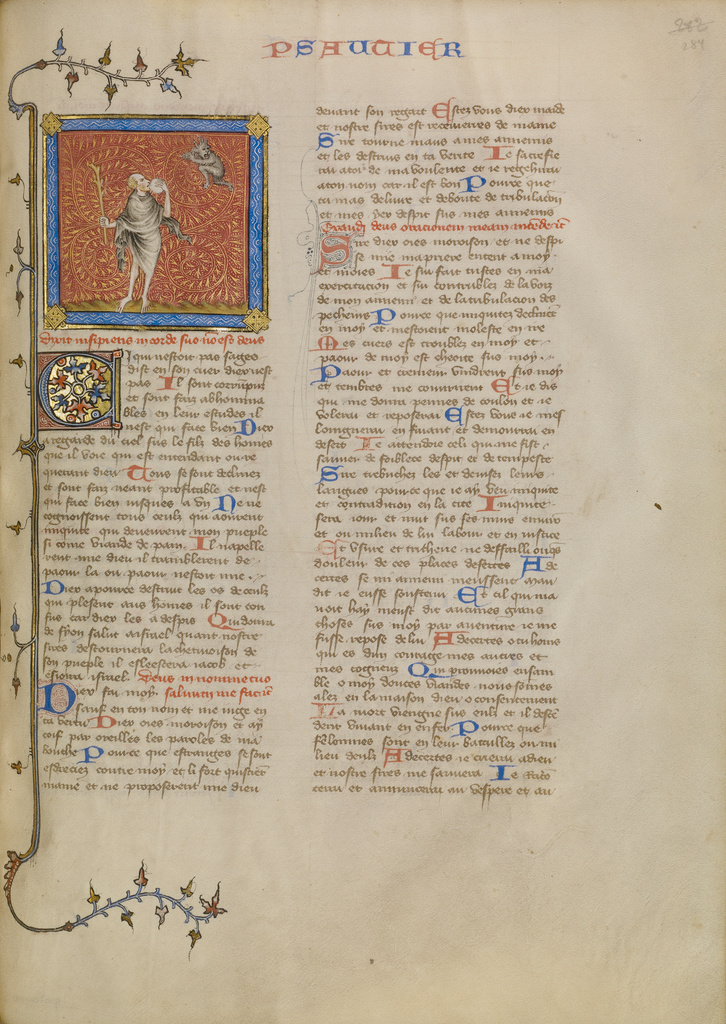 PSAUTIER
282
284
Dixit insipiens in corde suo non est deus
Di qui nestoit pas sages
dist en son cuer diex nest
pas Il sont corrumpu
et sont faiz abhomina
bles en leur estudes il
nest qui face bien Diex
a regarde du ciel sus le filz des homes
que il voie qui est entendant ou re
querant dieu Touz se sont declinez
et sont faiz neant profitable et nest
qui face bien iusques a un Ne ne
cognoissent touz ceulz qui aouvrent
iniquite qui deveurent mon pueple
si come viande de pain Il napelle
rent mie dieu il tramblerent de
paour la ou paour nestoit mie
Diex a pource destruit les os de ceulz
qui plesent aus homes il sont con
fus car diex les a despis Qui donra
de syon salut a israel quant nostre
sires destournera la chetivoison de
son pueple il esleescera iacob et
esioira israel Deus in nomine tuo
Diex fai moy salvum me fac
sauf en ton nom et me iuge en
ta vertu Diex oies moroison et ay
coif par oreilles les paroles de ma
bouche Pource que estranges se sont
esdreciez contre moy et li fort quistrent
mame et ne proposerent mie dieu
devant son regart Estez vous diex maide
et nostre sires est receverres de mame
Sire tourne maus a mes annemis
et les destruis en ta verite Ie sacrefie
rai a toi de ma voulente et ie regehirai
a ton nom car il est bon Pource que
tu mas delivre et deboute de tribulacion
et mes yex despit sus mes annemis
Exaudi deus orationem meam
Sire diex oies moroison et ne despi
se mie ma priere entent a moy
et moies Ie sui fait tristes en ma
exercitacion et sui controublez de la voiz
de mon annemi et de la tribulacion des
pecheurs Pource que iniquitez declinerent
en moy et mestoient moleste en ire
Mes cuers est troublez en moy et
paour de moy est cheoite sus moy
Paour et cremeur vindrent sus moy
et tenebres me couvrirent Et ie dis
qui me donra pennes de coulon et ie
volerai et reposerai Estez vous ie mes
loingnerai en fuiant et demourai en
desert Ie attendoie celi qui me fist
sauver de foiblece despit et de tempeste
Sire trebuchez les et devisez leurs
langues pource que ie ay veu iniquite
et contradition en la cite Iniquite
sera iour et nuit sus ses murs environ
et ou milieu de lui labour et en iustice
Et usure et tricherie ne deffailli onques
douleur de ces places desertes A de
certes se mi annemi meussent mau
dit ie eusse soustenu Et cil qui ma
voit hay meust dit aucunes grans
choses sus moy par aventure ie me
fusse repose de lui A decertes o tu homs
qui es dun courage mes autres et
mes cogneuz Qui prenoies ensam
ble o moy douces viandes nous somes
alez en la maison dieu o consentement
La mort viengne sus eulz et il descen
dent vivant en enfer Pource que
felonnies sont en leur habitacles ou mi
lieu deulz A decertes ie criai a dieu
et nostre sires me sauvera Ie raco
terai et annuncerai au vespre et au